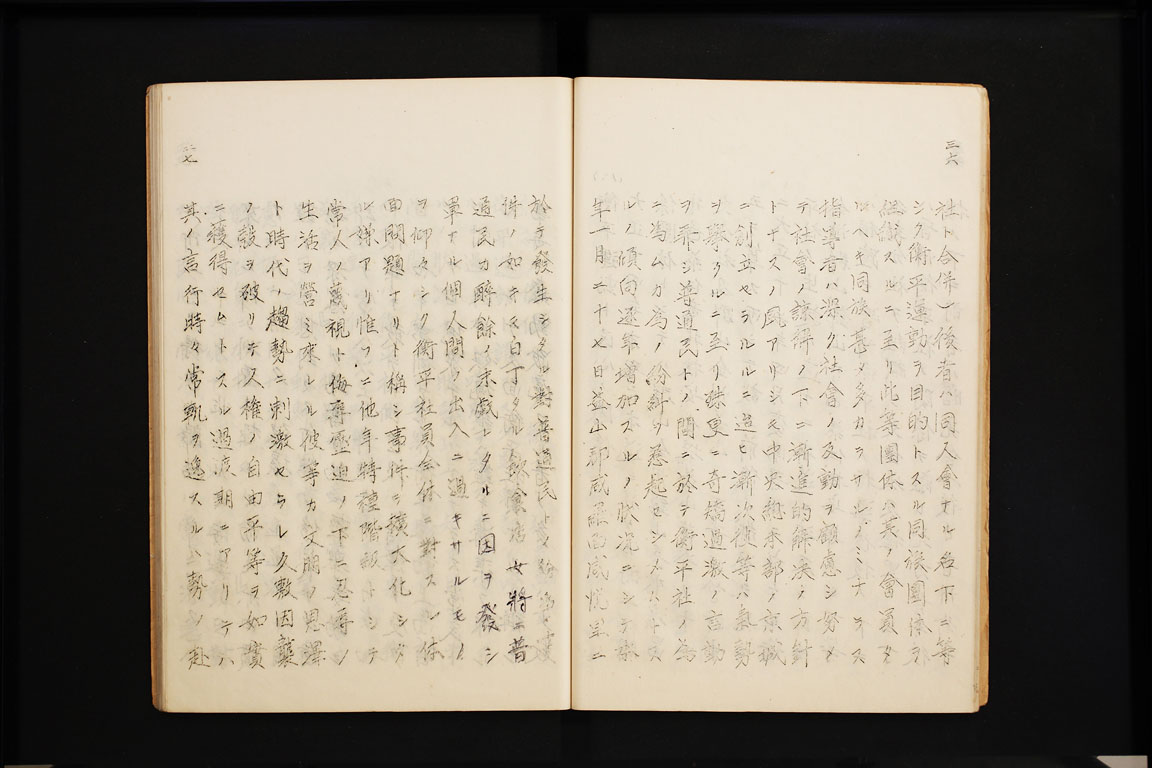 三六
社ト合併)後者ハ同人會ナル名下ニ等
シク衡平運動ヲ目的トスル同族團体ヲ
組織スルニ至リ此等團体ハ其ノ會員タ
ルヘキ同族甚タ多カラサルノミナラス
指導者ハ深ク社會ノ反動ヲ顧慮シ努メ
テ社會ノ諒解ノ下ニ漸進的解決ノ方針
トナスノ風アリシモ中央總本部ノ京城
ニ創立セラルルニ造ヒ漸次彼等ハ氣勢
ヲ擧クルニ至リ殊更ニ奇矯過激ノ言動
ヲ弄シ普通民トノ間ニ於テ衡平社ノ為
ニ為ムカ為ノ紛糾ヲ惹起セシメントス
ルノ傾向逐年増加スルノ状況ニシテ昨
年一月二十七日益山郡咸羅面咸悅里ニ
於テ發生シタル對普通民トノ紛
件ノ如キモ白丁タル飲食店女將ニ普
通民カ醉餘ノ末戲レタルニ因ヲ發シ
單ナル個人間ノ出入ニ過キサルモノ
ヲ仰々シク衡平社員全体ニ對スル体
面問題ナリト稱シ事件ヲ擴大化シタ
ル嫌アリ惟フニ他年特種階級トシテ
常人ノ蔑視ト侮辱壓迫ノ下ニ忍辱ノ
生活ヲ營ミ來レル彼等カ文明ノ恩澤
ト時代ノ趨勢ニ刺激セラレ久敷因襲
ノ殻ヲ破リテ人權ノ自由平等ヲ如實
ニ獲得セムトスル過渡期ニアリテハ
其ノ言行時々常軌ヲ逸スルハ勢ノ赴
三七